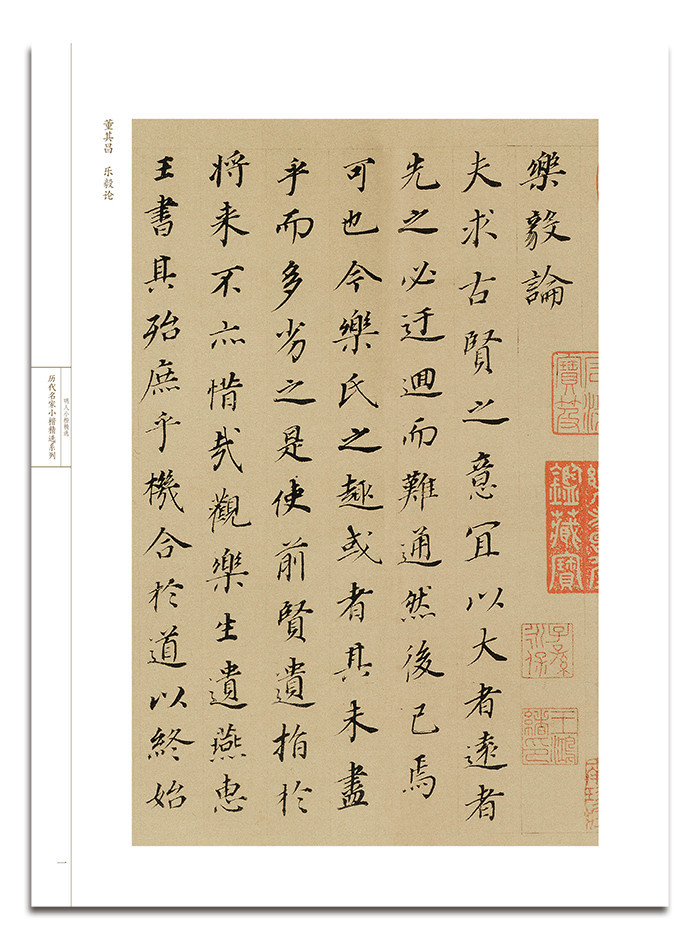 樂毅論
夫求古賢之意宜以大者遠者
先之必迂迴而難通然後已焉
可也今樂氏之趣或者其未盡
乎而多劣之是使前賢遺指於
将来不亦惜哉觀樂生遺燕惠
王書其殆庶乎機合於道以終始
鑑藏寶
子孫永保
王鴻緒印
董其昌 乐毅论
明人小楷精选
历代名家小楷精选系列
一